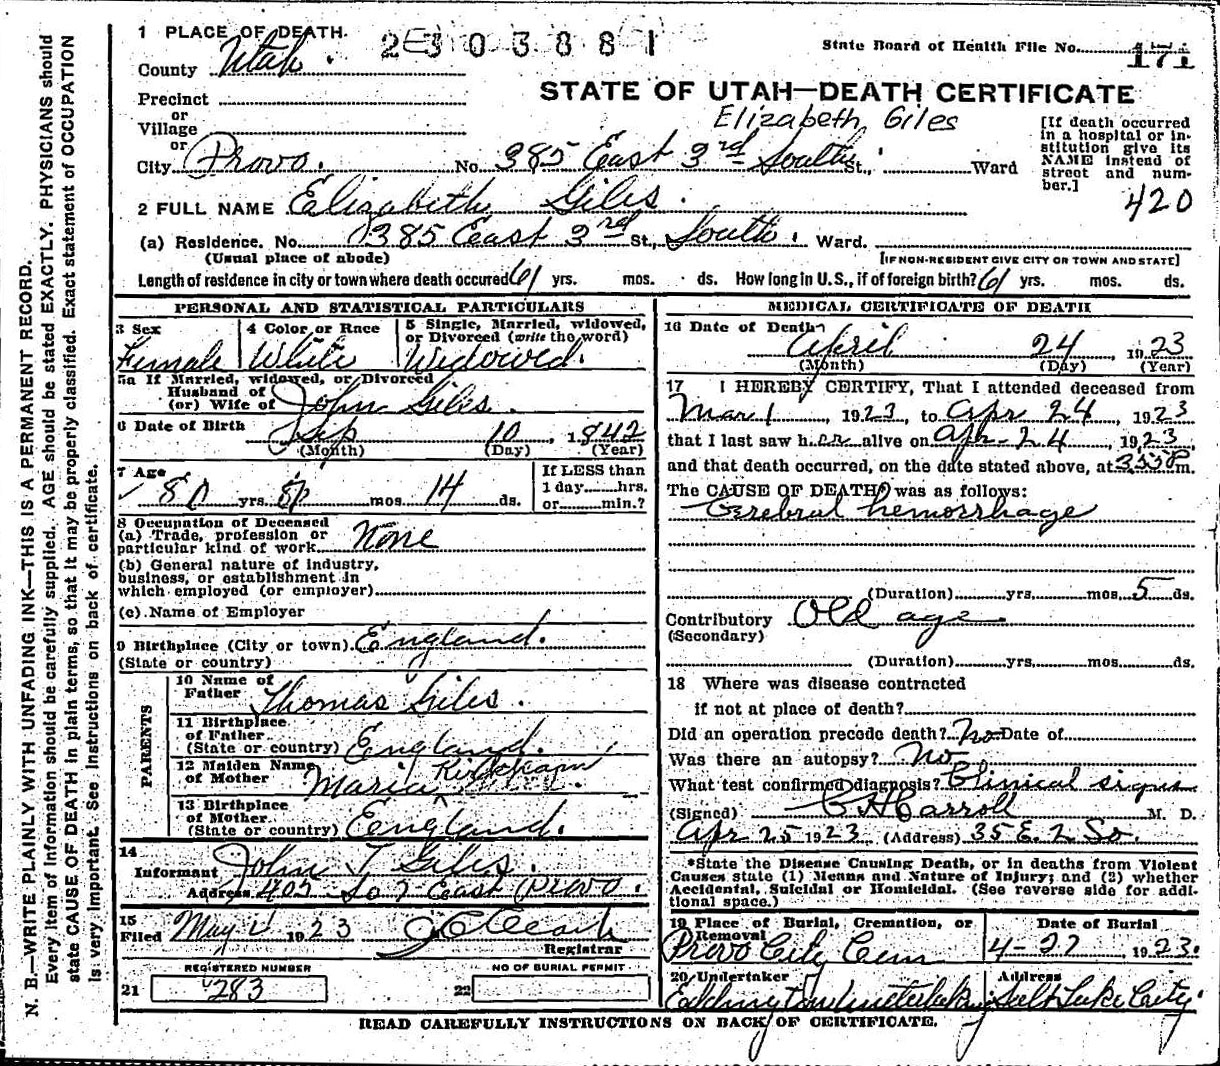 1 PLACE OF DEATH
2303881
State Board of Health File No. 171
County Utah.
STATE OF UTAH—DEATH CERTIFICATE
Precinct
or
Village
or
Elizabeth Giles
City Provo. No. 385 East 3rd South St., Ward
[If death occurred in a hospital or institution give its NAME instead of street and number.]
420
2 FULL NAME Elizabeth Giles.
(a) Residence. No. 385 East 3rd St., South. Ward.
(Usual place of abode)
[IF NON-RESIDENT GIVE CITY OR TOWN AND STATE]
Length of residence in city or town where death occured 61 yrs. mos. ds. How long in U.S., if of foreign birth? 61 yrs. mos. ds.
PERSONAL AND STATISTICAL PARTICULARS
3 Sex
Female
4 Color or Race
White
5 Single, Married, widowed, or Divorced (write the word)
Widowed.
5a If Married, widowed, or Divorced
Husband of
(or) Wife of John Giles.
6 Date of Birth Sep 10, 1842
(Month) (Day) (Year)
7 Age
80 yrs. mos. 14 ds.
If LESS than
1 day hrs.
or min.?
8 Occupation of Deceased
(a) Trade, profession or
particular kind of work None
(b) General nature of industry,
business, or establishment in
which employed (or employer)
(c) Name of Employer
9 Birthplace (City or town) England.
(State or country)
PARENTS
10 Name of
Father Thomas Giles.
11 Birthplace
of Father
(State or country) England.
12 Maiden Name
of Mother Maria Kirkham
13 Birthplace
of Mother
(State or country) England.
14
Informant John T Giles.
Address 407 So 7 East Provo.
15
Filed May 1923
Registrar
REGISTERED NUMBER
21 283
NO OF BURIAL PERMIT
22
MEDICAL CERTIFICATE OF DEATH
16 Date of Death
April 24, 1923
(Month) (Day) (Year)
17 I HEREBY CERTIFY, That I attended deceased from
Mar 1, 1923, to Apr 24, 1923
that I last saw her alive on Apr-24, 1923,
and that death occurred, on the date stated above, at P m.
The CAUSE OF DEATH was as follows:
Cerebral hemorrhage
(Duration) yrs. mos. 5 ds.
Contributory Old age.
(Secondary)
(Duration) yrs. mos. ds.
18 Where was disease contracted
if not at place of death?
Did an operation precede death? No Date of
Was there an autopsy? No
What test confirmed diagnosis? Clinical signs
(Signed) C H Carroll M. D.
Apr 25 1923 (Address) 35 E. 2 So.
*State the Disease Causing Death, or in deaths from Violent
Causes state (1) Means and Nature of Injury; and (2) whether
Accidental, Suicidal or Homicidal. (See reverse side for addi-
tional space.)
19 Place of Burial, Cremation, or
Removal
Provo City Cem
Date of Burial
4-27 1923.
20 Undertaker
Address
Salt Lake City
READ CAREFULLY INSTRUCTIONS ON BACK OF CERTIFICATE.
N. B.—WRITE PLAINLY WITH UNFADING INK—THIS IS A PERMANENT RECORD.
Every item of information should be carefully supplied. AGE should be stated EXACTLY. PHYSICIANS should
state CAUSE OF DEATH in plain terms, so that it may be properly classified. Exact statement of OCCUPATION
is very important. See instructions on back of certificate.